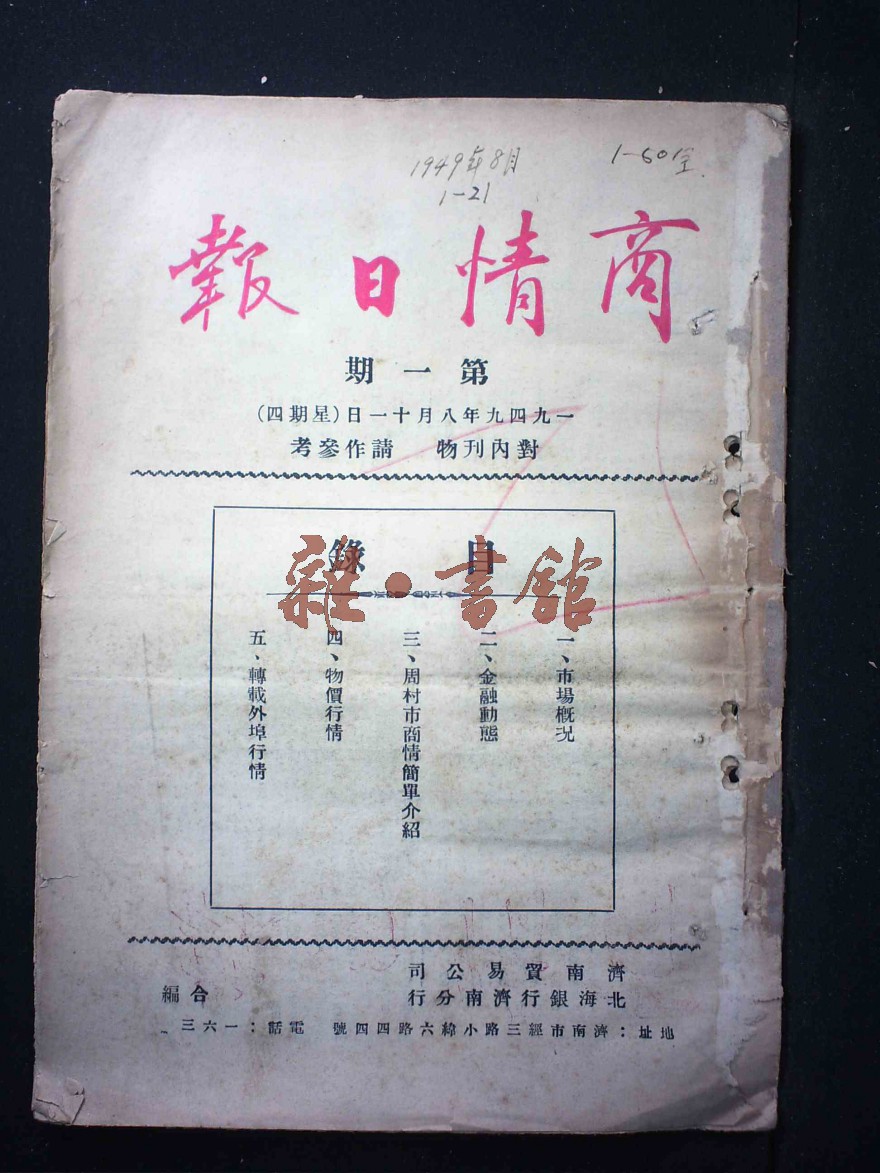 1949年8月
1-21
1-60全
商情日報
第一期
一九四九年八月十一日(星期四)
對內刊物 請作參考
目錄
雜·書館
一、市場概況
二、金融動態
三、周村市商情簡單介紹
四、物價行情
五、轉載外埠行情
濟南貿易公司
北海銀行濟南分行
合編
地址：濟南市經三路小緯六路四四號 電話：一六三一